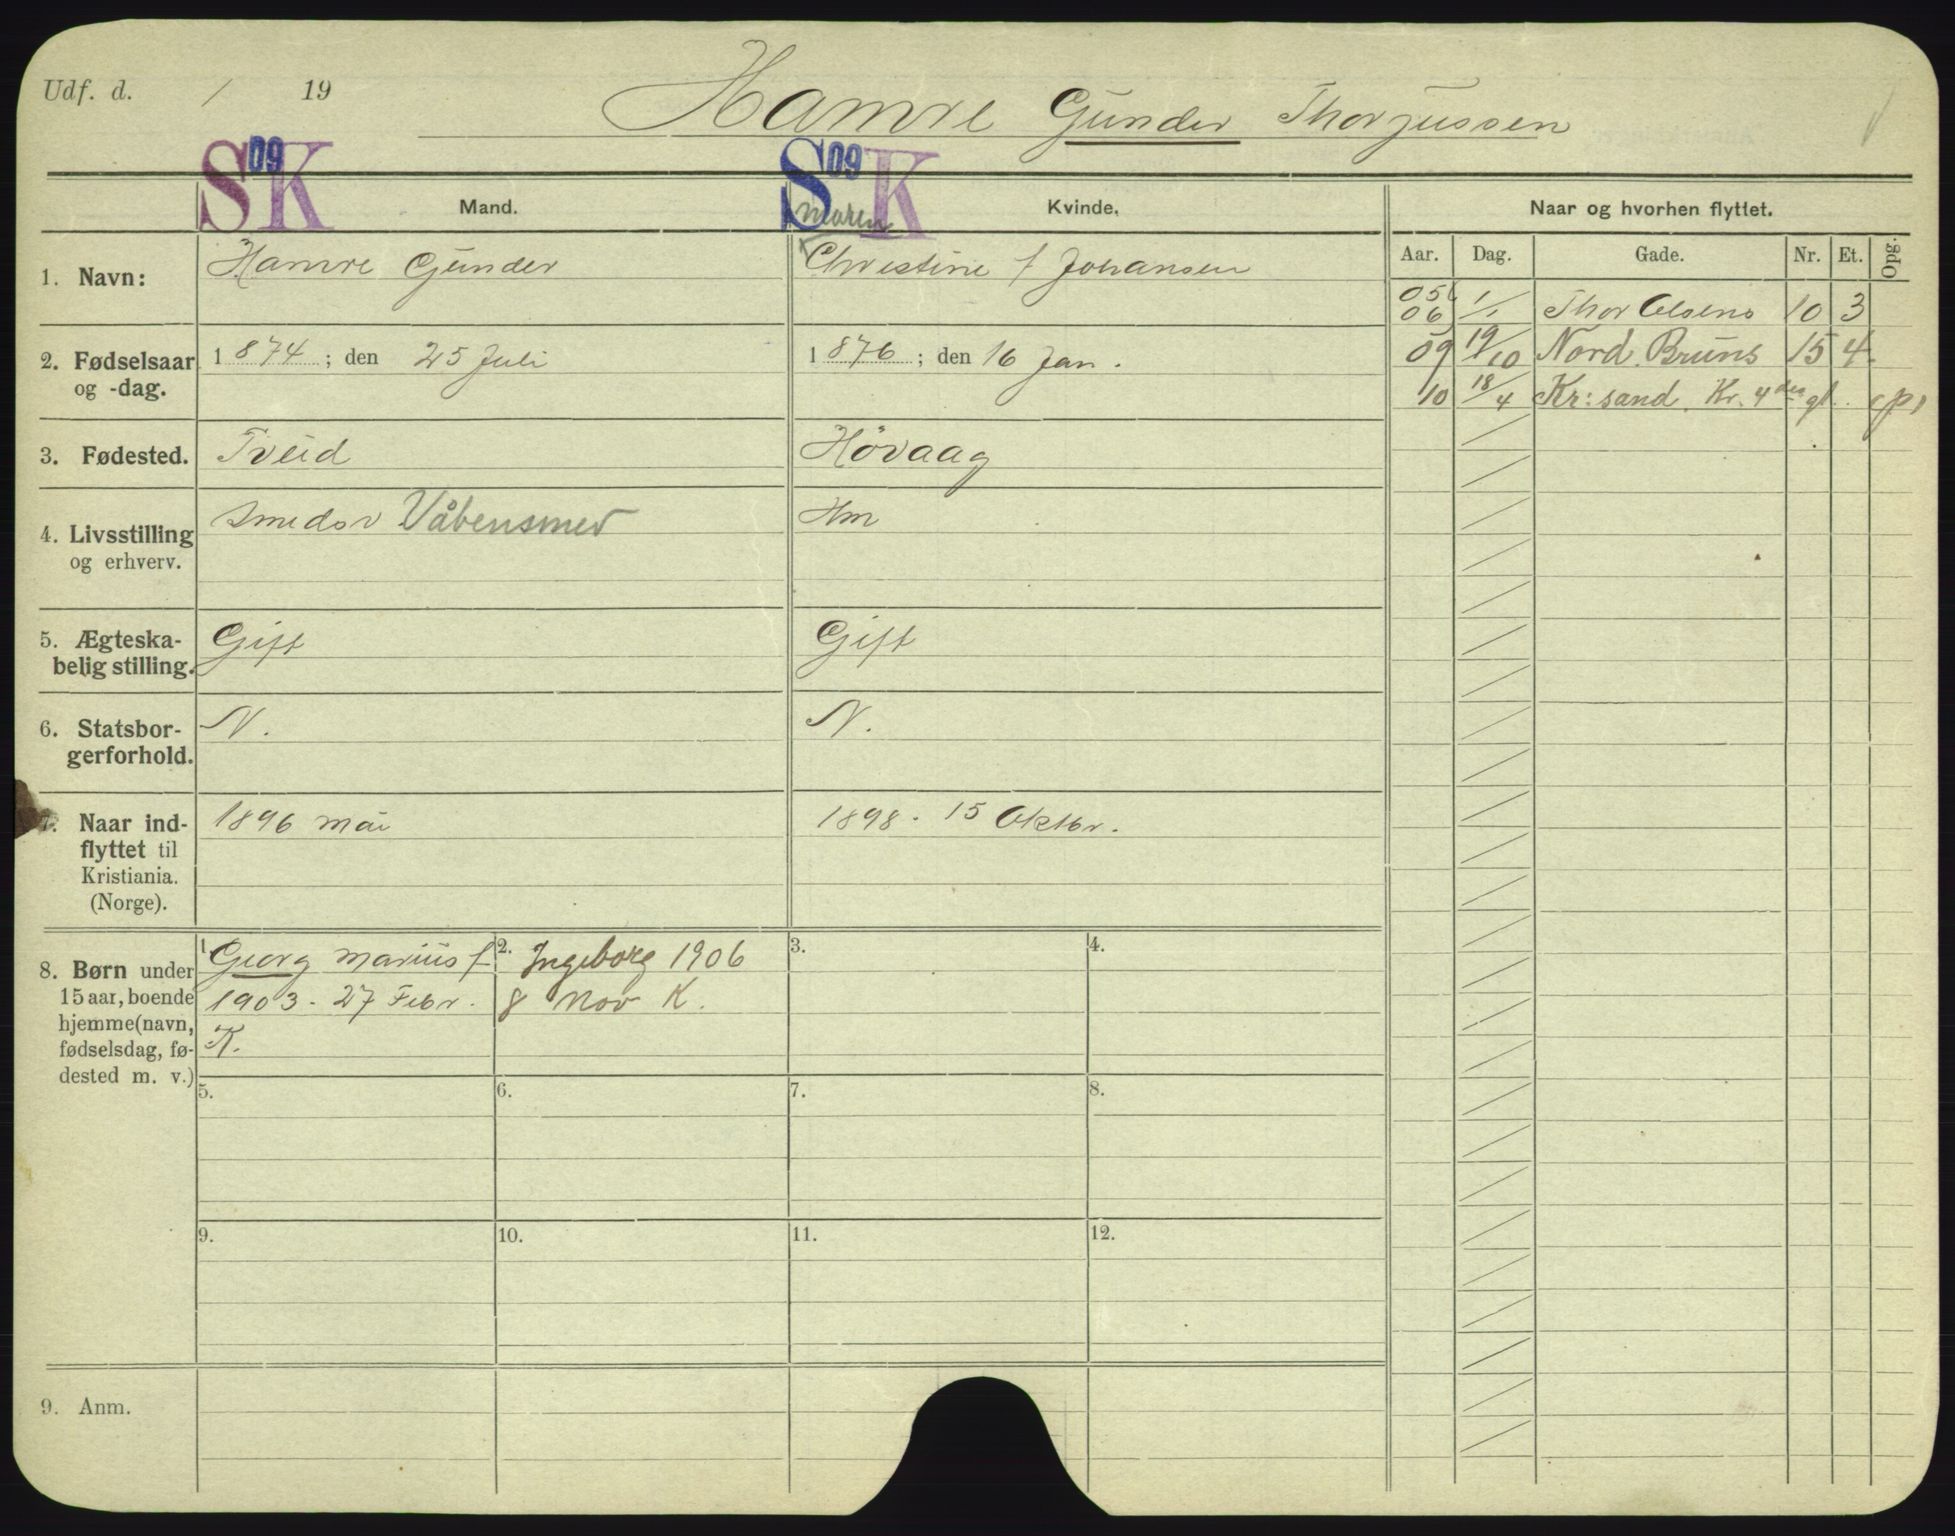 Udf. d. / 19
Hamre Gunder Thorjussen
S 09 K
S 09 K
Mand.
Kvinde.
Naar og hvorhen flyttet.
Aar. Dag. Gade. Nr. Et. Opg.
1. Navn:
Hamre Gunder
Maren
Christine f Johansen
05
06 1/1 Thor Olsens 10 3
09 19/10 Nord. Bruns 15 4
10 18/4 Kr:sand. Kr. 4des gt. (P)
2. Fødselsaar
og -dag.
1874; den 25 Juli
1876; den 16 Jan.
3. Fødested.
Tveid
Høvaag
4. Livsstilling
og erhverv.
Smedsv Våbensmed
Hm
5. Ægteska-
belig stilling.
Gift
Gift
6. Statsbor-
gerforhold.
N.
N.
7. Naar ind-
flyttet til
Kristiania.
(Norge).
1896 Mai
1898. 15 Oktbr.
8. Børn under
15 aar, boende
hjemme (navn,
fødselsdag, fø-
dested m. v.)
1. Georg Marius f
1903 - 27 Febr.
K.
2. Ingeborg 1906
8 Nov K.
3.
4.
5.
6.
7.
8.
9.
10.
11.
12.
9. Anm.